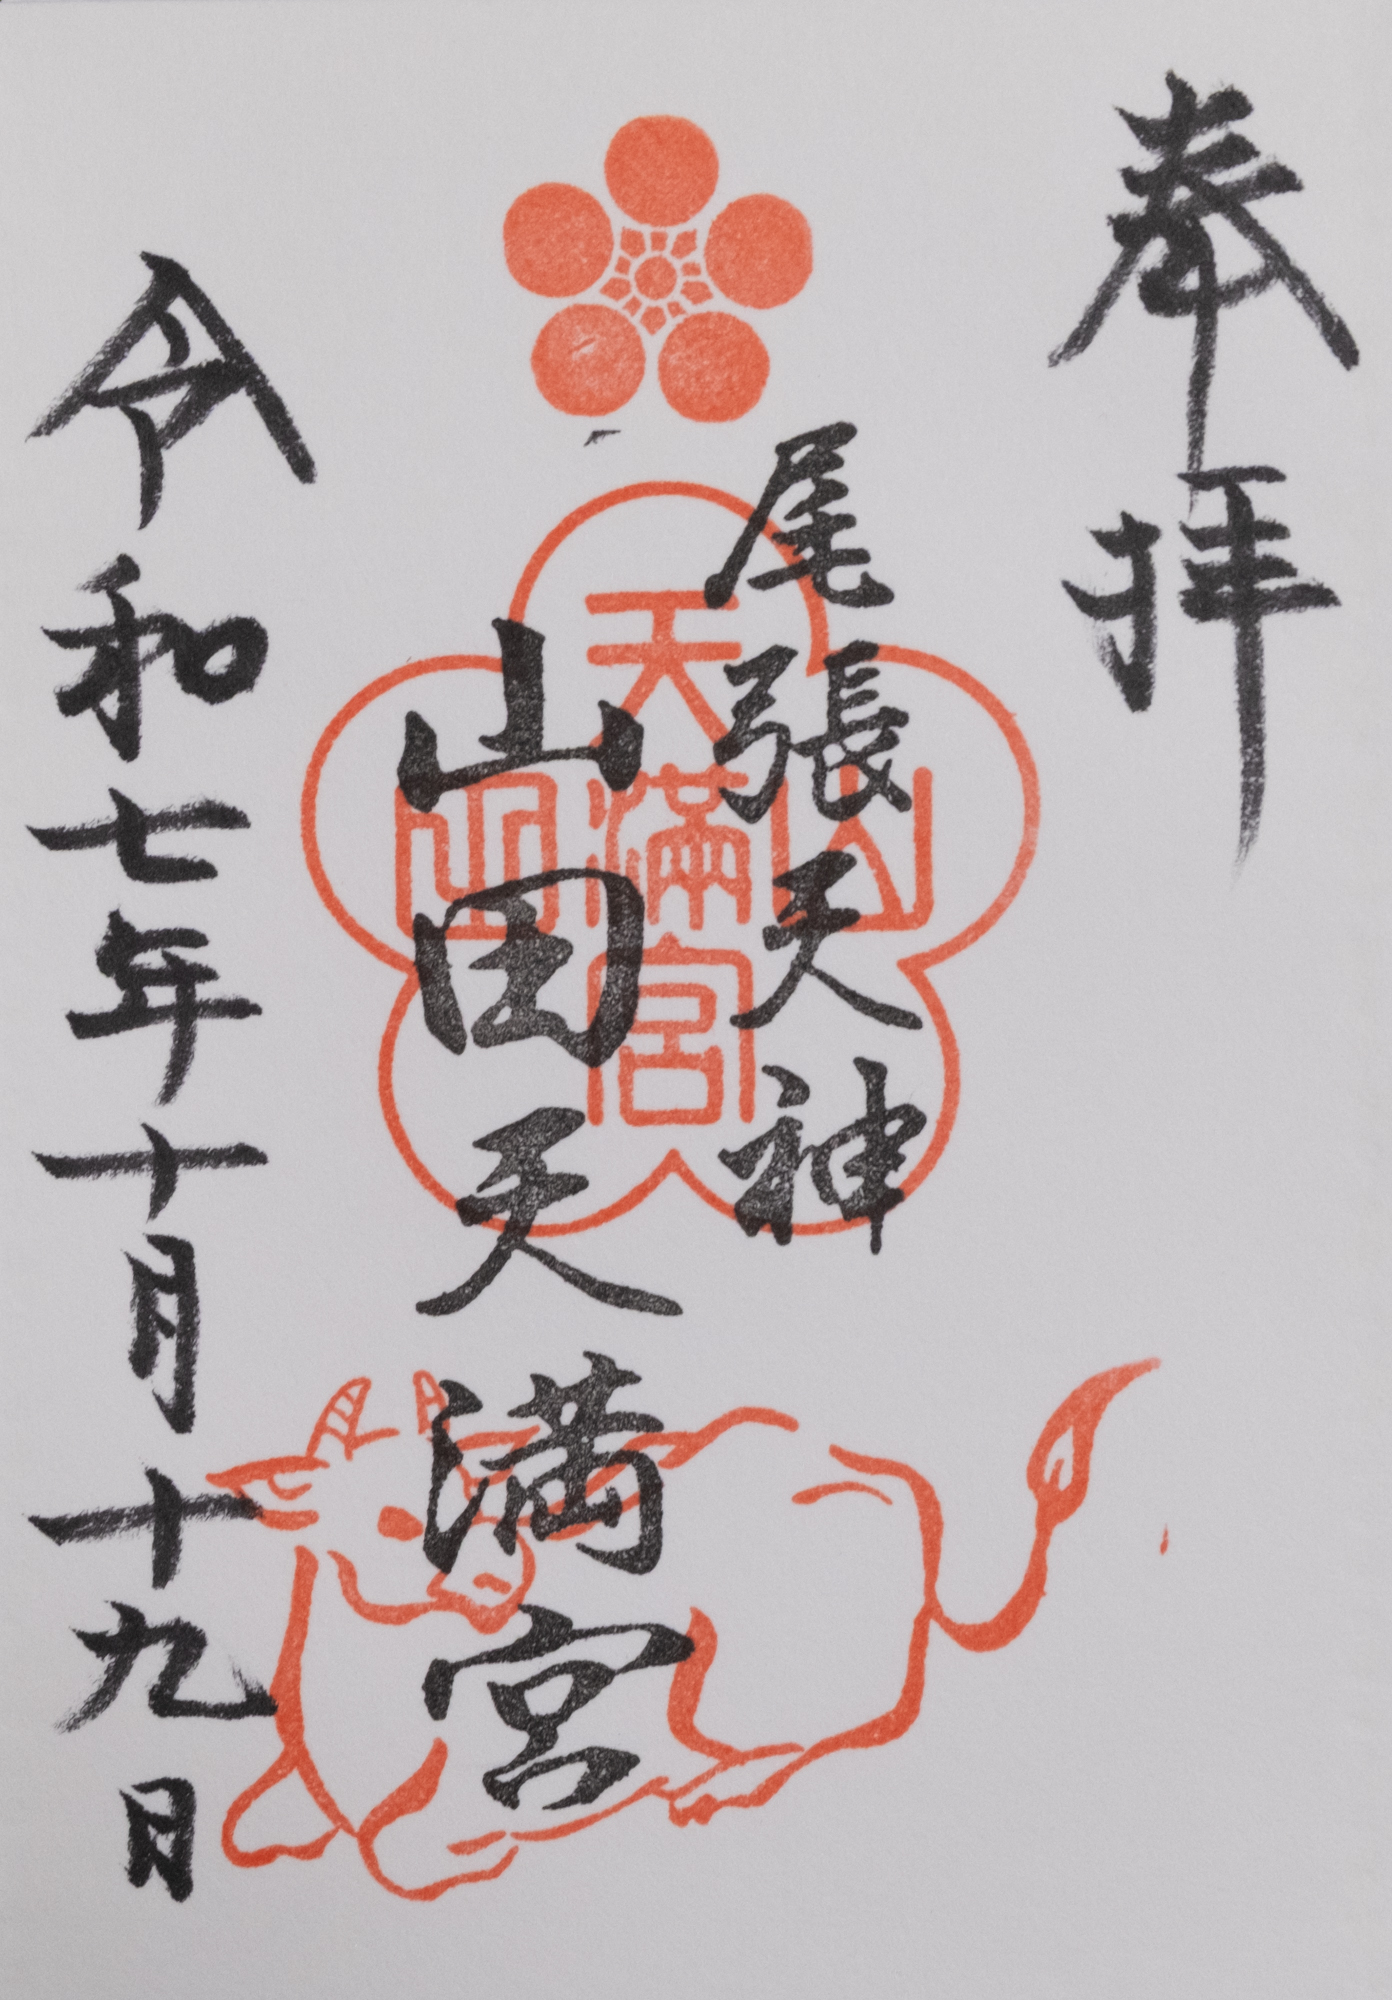 奉拝
尾張天神
山田天満宮
山田
天満宮
令和七年十月十九日